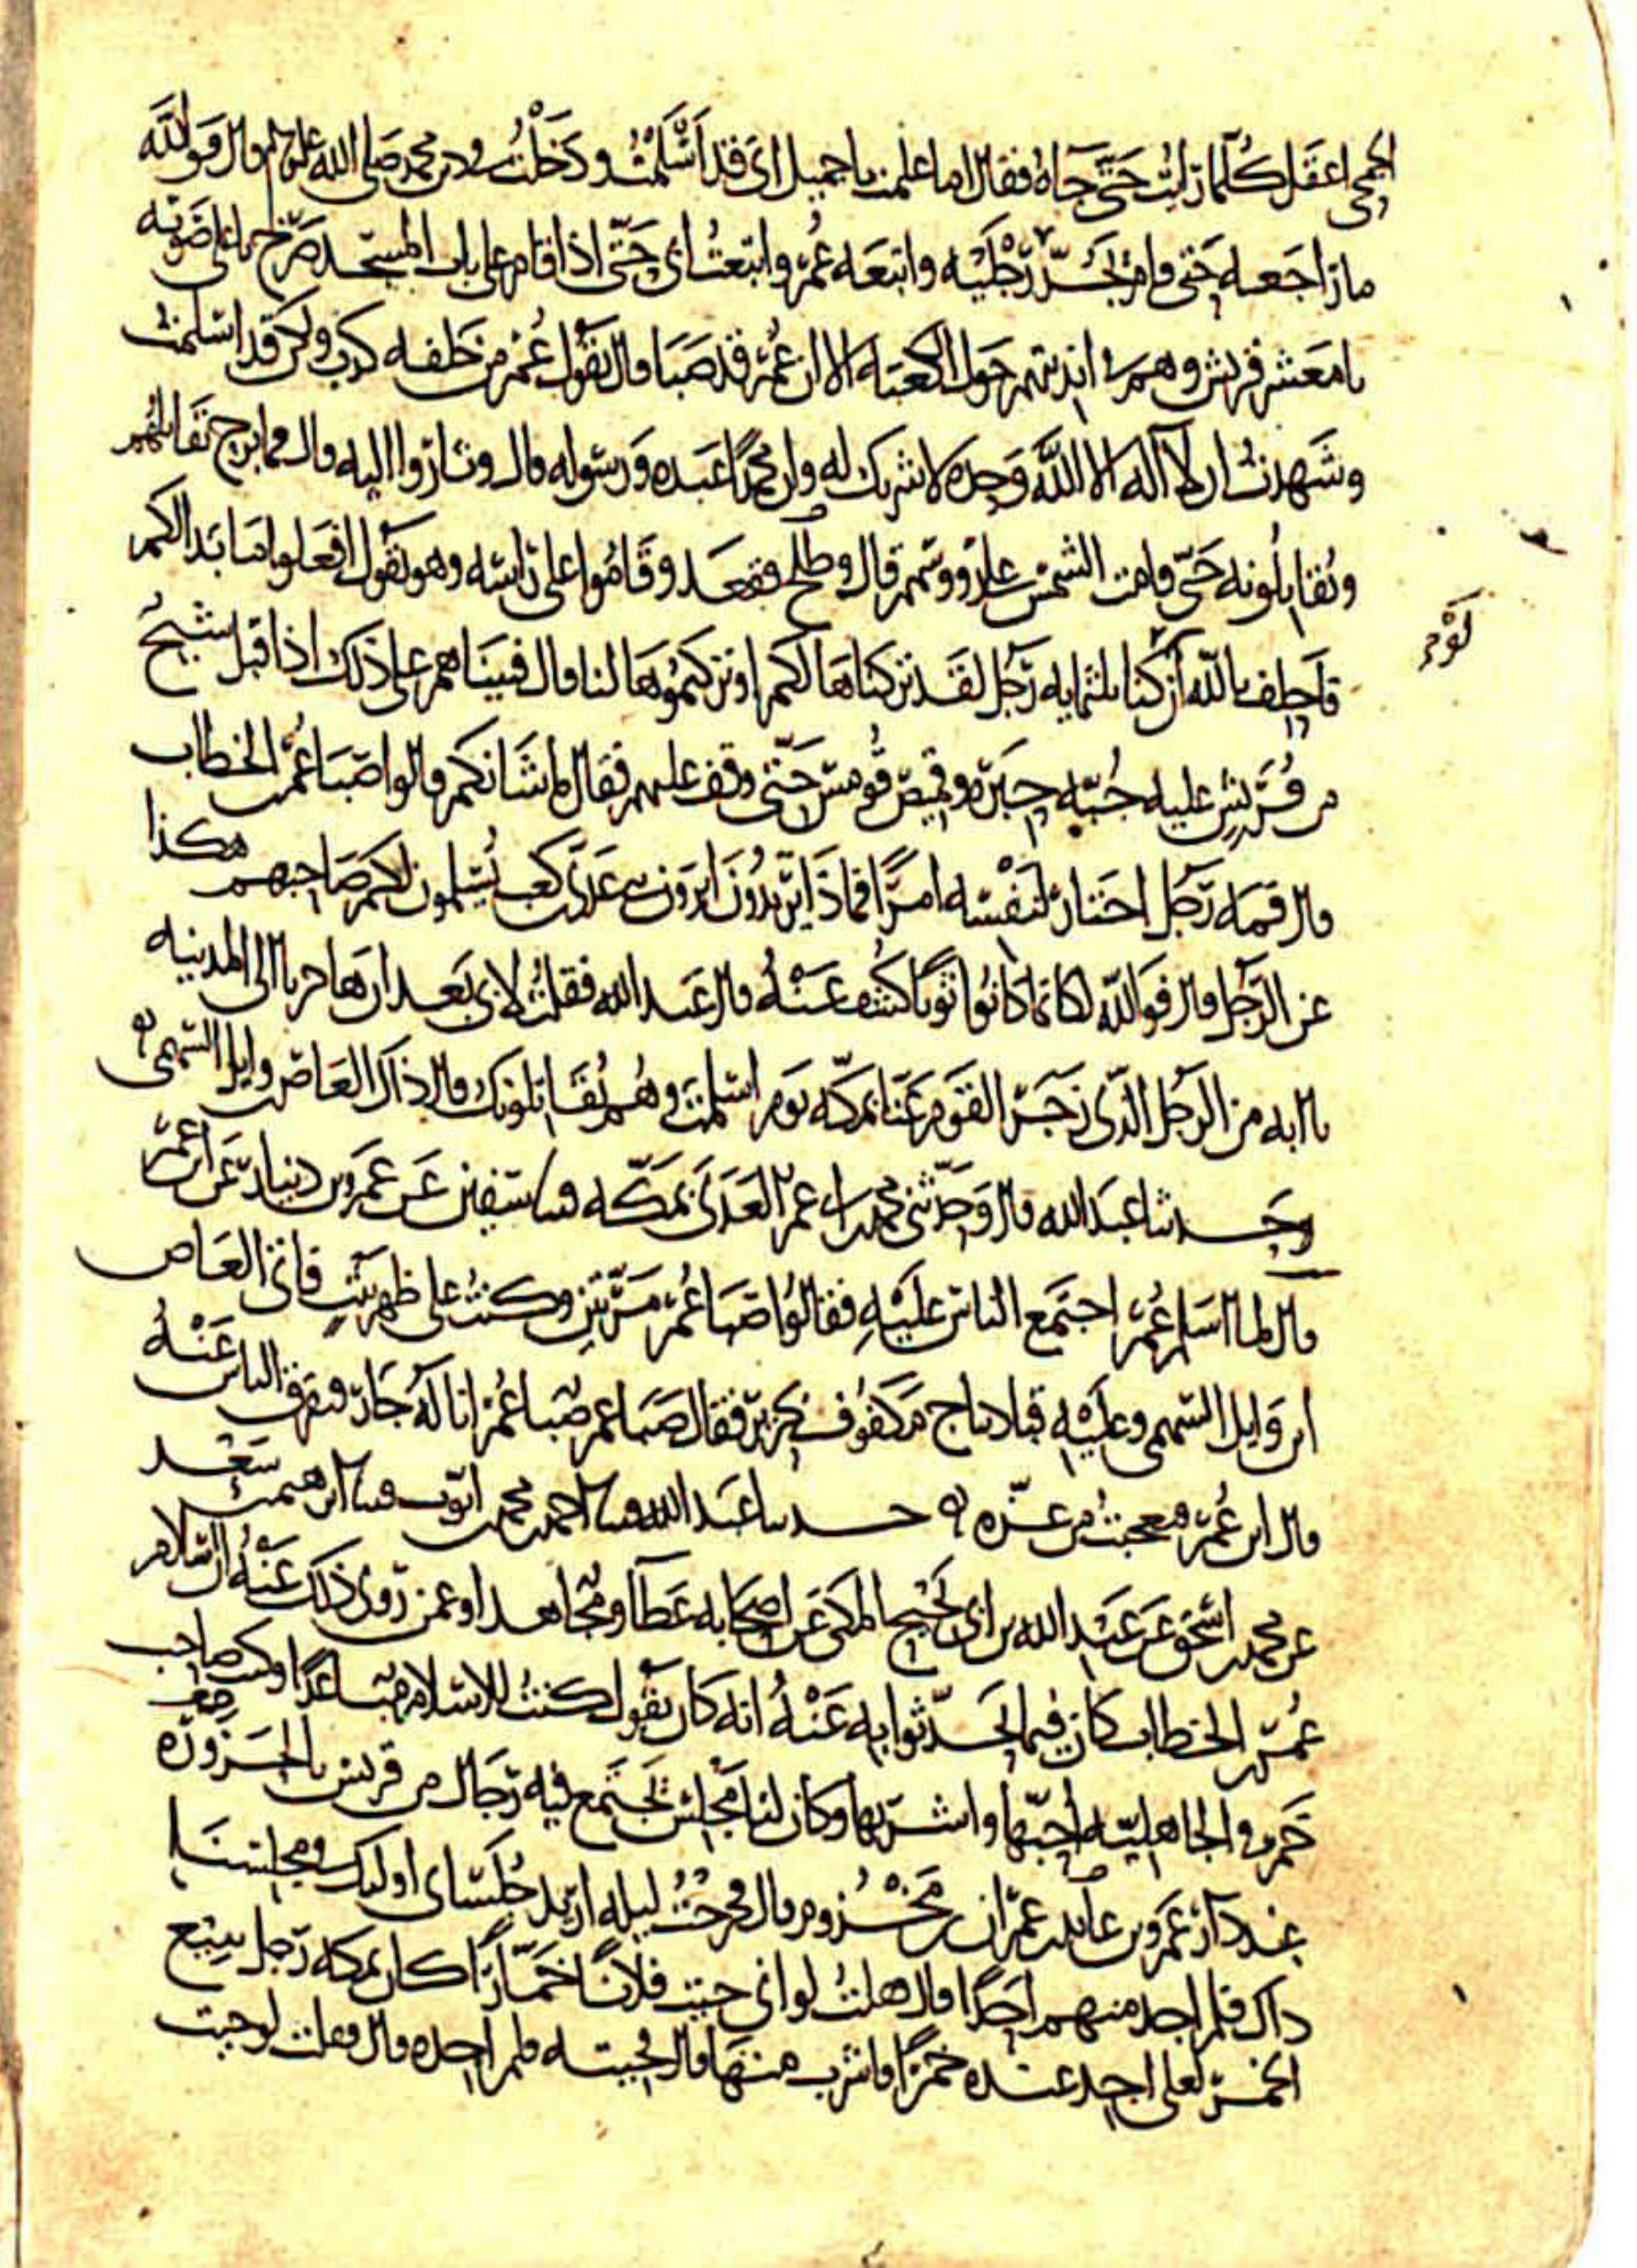 الجمحي اعقل كلما رايت حتى جاه فقال اما علمت يا جميل اني قد اسلمت ودخلت في دين محمد صلى الله عليه وسلم قال فوالله
ما راجعه حتى قام يجر رجليه واتبعه عمر واتبعت ابي حتى اذا قام على باب المسجد صرخ باعلى صوته
يا معشر قريش وهم في انديتهم حول الكعبه الا ان عمر قد صبا قال يقول عمر من خلفه كذب ولكن قد اسلمت
وشهدت ان لا اله الا الله وحده لا شريك له وان محمدا عبده ورسوله قال وثاروا اليه قال فما برح يقاتلهم
ويقاتلونه حتى قامت الشمس على رووسهم قال وطلح فقعد وقاموا على راسه وهو يقول افعلوا ما بدا لكم
فاحلف بالله ان لو كنا ثلثمايه رجل لقد تركناها لكم او تركتموها لنا قال فبينا هم على ذلك اذ اقبل شيخ
من قريش عليه جبه حبره وقميص قومس حتى وقف عليهم فقال ما شانكم قالوا صبا عمر بن الخطاب
قال فمه رجل اختار لنفسه امرا فماذا تريدون اترون بني عدي بن كعب يسلمون لكم صاحبهم هكذا
عن الرجل قال فوالله لكانما كانوا ثوبا كشف عنه قال عبد الله فقلت لابي بعد ان هاجرنا الى المدينه
يا ابه من الرجل الذي زجر القوم عنا بمكه يوم اسلمت وهم يقاتلونك قال ذاك العاص بن وايل السهمي ه
وحدثنا عبد الله قال وحدثني محمد بن ابي عمر العدني بمكه قثنا سفين عن عمرو بن دينار عن ابن عمر
قال لما اسلم عمر اجتمع الناس عليه فقالوا صبا عمر مرتين وكنت على ظهر بيت فاتى العاص
ابن وايل السهمي وعليه قبا ديباج مكفوف بحرير فقال صبا عمر صبا عمر انا له جار فتفرق الناس عنه
قال ابن عمر فعجبت من عزه ه حدثنا عبد الله قثنا احمد بن محمد بن ايوب قثنا ابرهيم بن سعد
عن محمد بن اسحق عن عبد الله بن ابي نجيح المكي عن اصحابه عطا ومجاهد او عمن روى ذلك عنه ان اسلام
عمر بن الخطاب كان فيما تحدثوا به عنه انه كان يقول كنت للاسلام مباعدا وكنت صاحب
خمر في الجاهليه احبها واشربها وكان لنا مجلس يجتمع فيه رجال من قريش بالحزوره
عند دار عمرو بن عايد بن عمران بن مخزوم قال فخرجت ليله اريد جلساي اوليك في مجلسنا
ذاك فلم اجد منهم احدا قال فقلت لو اني جيت فلانا خمارا كان بمكه رجل يبيع
الخمر لعلي اجد عنده خمرا فاشرب منها قال فجيته فلم اجده قال فقلت لو جيت